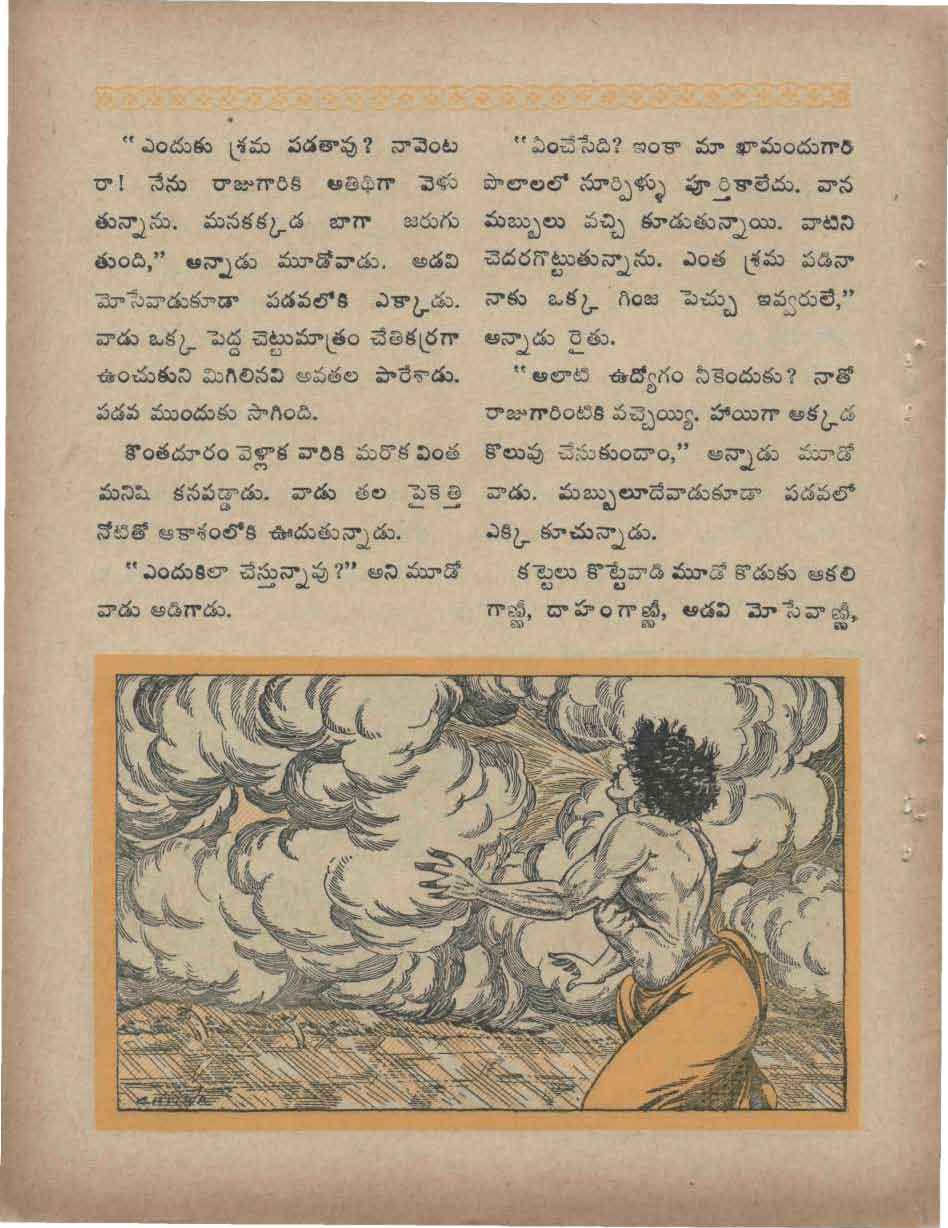 “ఎందుకు శ్రమ పడతావు? నావెంట
రా! నేను రాజుగారికి అతిథిగా వెళు
తున్నాను. మనకక్కడ బాగా జరుగు
తుంది,” అన్నాడు మూడోవాడు. అడవి
మోసేవాడుకూడా పడవలోకి ఎక్కాడు.
వాడు ఒక్క పెద్ద చెట్టుమాత్రం చేతికర్రగా
ఉంచుకుని మిగిలినవి అవతల పారేశాడు.
పడవ ముందుకు సాగింది.
కొంతదూరం వెళ్లాక వారికి మరొక వింత
మనిషి కనపడ్డాడు. వాడు తల పైకెత్తి
నోటితో ఆకాశంలోకి ఊదుతున్నాడు.
“ఎందుకిలా చేస్తున్నావు?” అని మూడో
వాడు అడిగాడు.
“ఏంచేసేది? ఇంకా మా ఖామందుగారి
పొలాలలో నూర్పిళ్ళు పూర్తికాలేదు. వాన
మబ్బులు వచ్చి కూడుతున్నాయి. వాటిని
చెదరగొట్టుతున్నాను. ఎంత శ్రమ పడినా
నాకు ఒక్క గింజ పెచ్చు ఇవ్వరులే,”
అన్నాడు రైతు.
“అలాటి ఉద్యోగం నీకెందుకు? నాతో
రాజుగారింటికి వచ్చెయ్యి. హాయిగా అక్కడ
కొలువు చేసుకుందాం,” అన్నాడు మూడో
వాడు. మబ్బులూదేవాడుకూడా పడవలో
ఎక్కి కూచున్నాడు.
కట్టెలు కొట్టేవాడి మూడో కొడుకు ఆకలి
గాణ్ణీ, దాహంగాణ్ణీ, అడవి మోసేవాణ్ణీ,
CHITRA